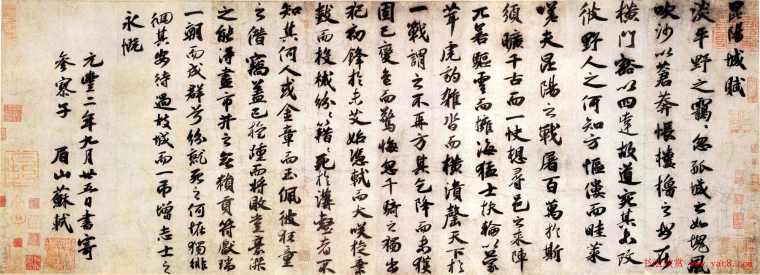 昆陽城賦
淡平野之靄靄忽孤城之如塊風
吹沙以蒼莽悵樓櫓之安在
橫門豁以四達故道宛其未改
彼野人之何知方傴僂而畦菜
嗟夫昆陽之戰屠百萬於斯
須曠千古而一快想尋邑之來陣
兀若驅雲而擁海猛士扶輪以蒙
茸虎豹雜沓而橫潰罄天下於
一戰謂之不再方其乞降而未獲
固已變色而驚悔忽千騎之獨出
犯初鋒於未艾始憑軾而大笑旋棄
鼓而投械紛紛籍籍死於溝壑者不
知其何人或金章而玉佩彼狂童
之僭竊蓋已旋踵而將敗豈豪傑
之能得盡市井之無賴貢符獻瑞
一朝而成群兮紛就死之何怪獨徘
徊其安待過故城而一弔增志士之
永慨
元豐二年九月廿五日書寄
參寥子 眉山蘇軾
www.yac8.com